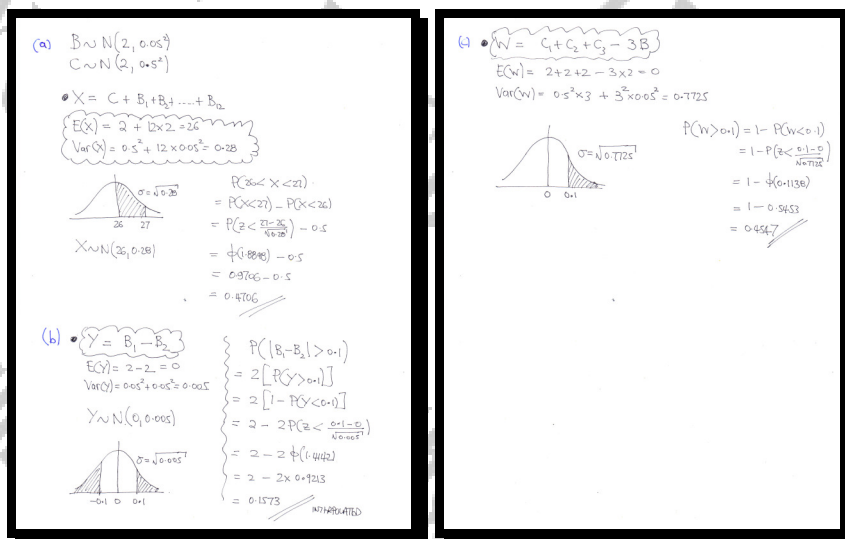 (a) B~N(2, 0.05²)
C~N(2, 0.5²)
• X = C + B₁+B₂+.....+B₁₂
E(X) = 2 + 12×2 = 26
Var(X) = 0.5² + 12×0.05² = 0.28
σ=√0.28
26 27
X~N(26, 0.28)
P(26<X<27)
= P(X<27) - P(X<26)
= P(z < (27-26)/√0.28) - 0.5
= ϕ(1.8898) - 0.5
= 0.9706 - 0.5
= 0.4706
(b) • Y = B₁ - B₂
E(Y) = 2-2 = 0
Var(Y) = 0.05²+0.05² = 0.005
Y~N(0, 0.005)
σ=√0.005
-0.1 0 0.1
P(|B₁-B₂| > 0.1)
= 2[P(Y>0.1)]
= 2[1-P(Y<0.1)]
= 2 - 2P(z < (0.1-0)/√0.005)
= 2 - 2ϕ(1.4142)
= 2 - 2×0.9213
= 0.1573
INTERPOLATED
(c) • W = C₁+C₂+C₃ - 3B
E(W) = 2+2+2 - 3×2 = 0
Var(W) = 0.5²×3 + 3²×0.05² = 0.7725
σ=√0.7725
0 0.1
P(W>0.1) = 1 - P(W<0.1)
= 1 - P(z < (0.1-0)/√0.7725)
= 1 - ϕ(0.1138)
= 1 - 0.5453
= 0.4547